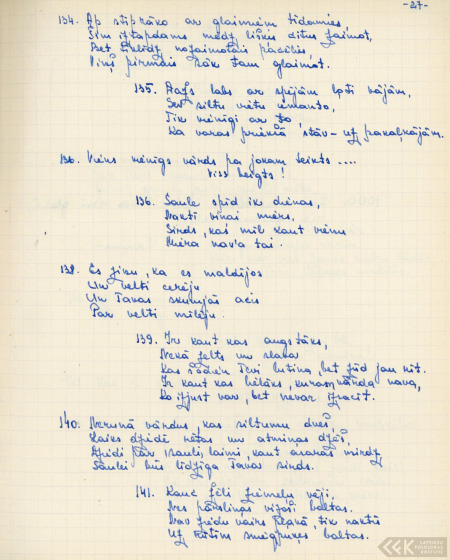 -27-
134. Ap stiprāko ar glaimiem tīdamies,
Sim iztapdams mēdz lišķis citus zaimot,
Bet līdz nozaimotais pacelies,
Viņš pirmais sāk tam glaimot.
135. Dažs labs ar spējām ļoti vājām,
Sev siltu vietu iemanto,
Tik vienīgi ar to,
Ka varas priekšā stāv uz pakaļkājām.
136. Viens vienīgs vārds pa jokam teikts ....
viss beigts!
136. Saule spīd ik dienas,
Naktī viņai miers.
Sirds, kas mīl kaut vienu
Miera nav'a tai.
138. Es zinu, ka es maldījos
Un velti cerēju
Un Tavas skumjās acis
Par velti mīlēju.
139. Ir kaut kas augstāks,
Nekā zelts un slava
Kas šodien Tevi lutina, bet zūd jau rīt.
Ir kaut kas lielāks, kuram vārda nava,
Ko izjust var, bet nevar izsacīt.
140. Nerunā vārdus, kas siltumu dveš,
Laiks dziedē rētas un atmiņas dzēš,
Dziedi par sauli, laimi, kaut asaras mirdz
Saulei būs līdzīga Tavas sirds.
141. Kauc žēli ziemeļu vēji,
Nes pārsliņas vijoši baltas.
Nav ziedu vairs, tik naktīs
Uz rūtīm smeigušas baltas.
LATVIEŠU FOLKLORAS KRĀTUVE